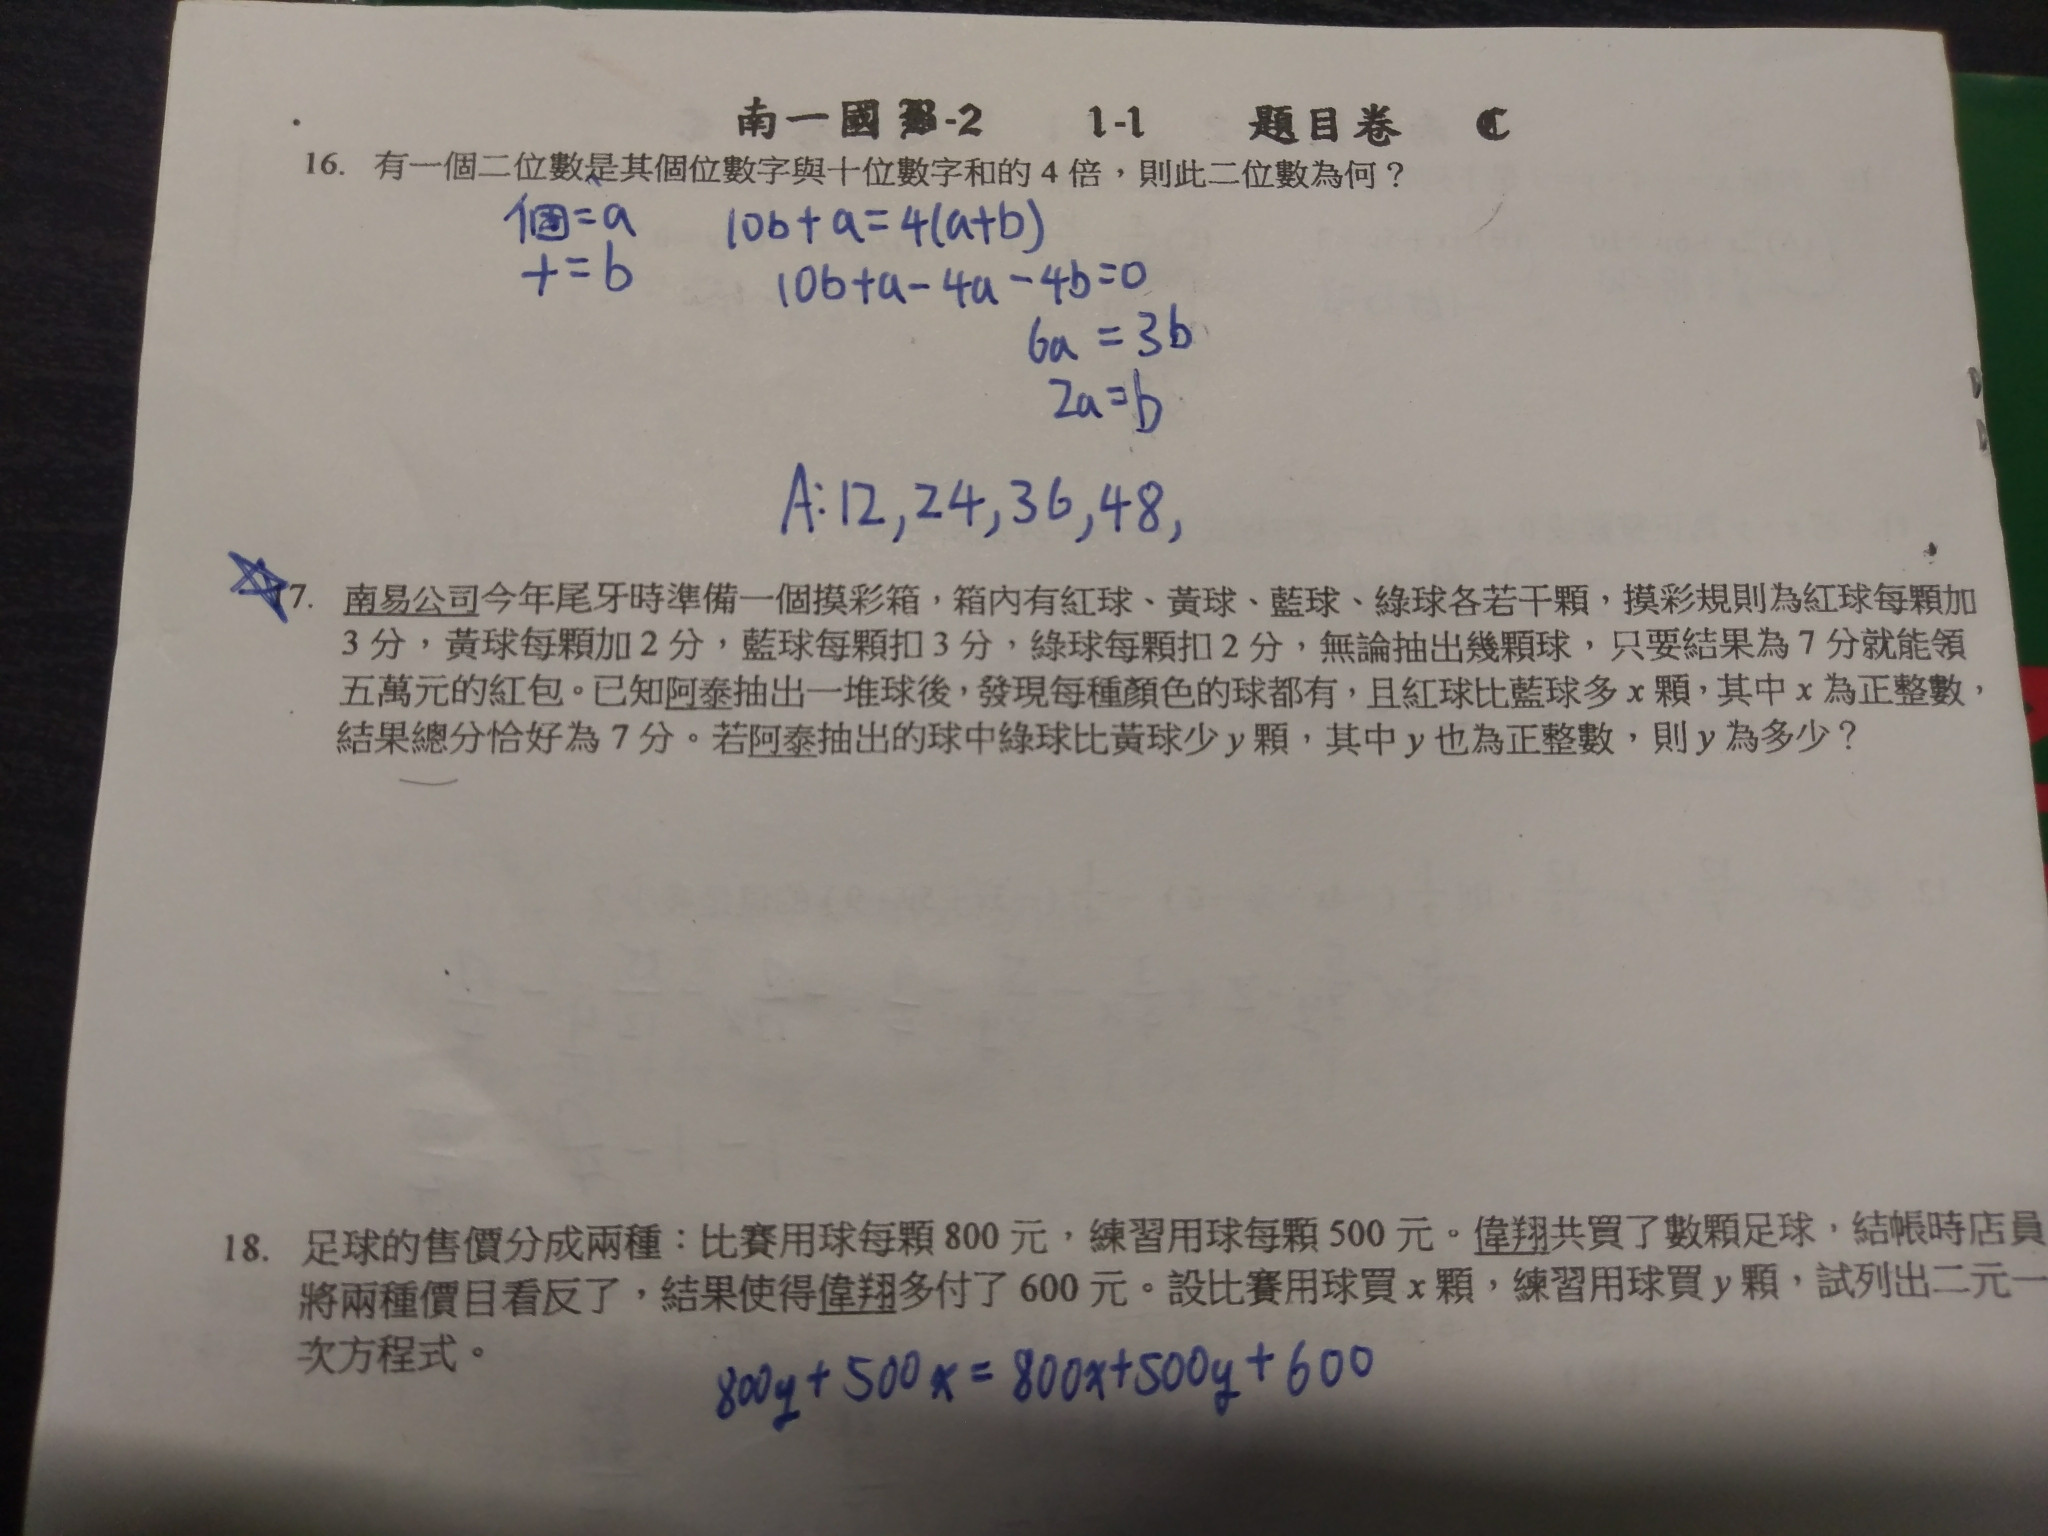 南一國 -2 1-1 題目卷 C
16. 有一個二位數是其個位數字與十位數字和的 4 倍，則此二位數為何？
個=a 10b+a=4(a+b)
十=b 10b+a-4a-4b=0
6a=3b
2a=b
A:12,24,36,48,
7. 南易公司今年尾牙時準備一個摸彩箱，箱內有紅球、黃球、藍球、綠球各若干顆，摸彩規則為紅球每顆加
3 分，黃球每顆加 2 分，藍球每顆扣 3 分，綠球每顆扣 2 分，無論抽出幾顆球，只要結果為 7 分就能領
五萬元的紅包。已知阿泰抽出一堆球後，發現每種顏色的球都有，且紅球比藍球多 x 顆，其中 x 為正整數，
結果總分恰好為 7 分。若阿泰抽出的球中綠球比黃球少 y 顆，其中 y 也為正整數，則 y 為多少？
18. 足球的售價分成兩種：比賽用球每顆 800 元，練習用球每顆 500 元。偉翔共買了數顆足球，結帳時店員
將兩種價目看反了，結果使得偉翔多付了 600 元。設比賽用球買 x 顆，練習用球買 y 顆，試列出二元一
次方程式。
800y+500x=800x+500y+600